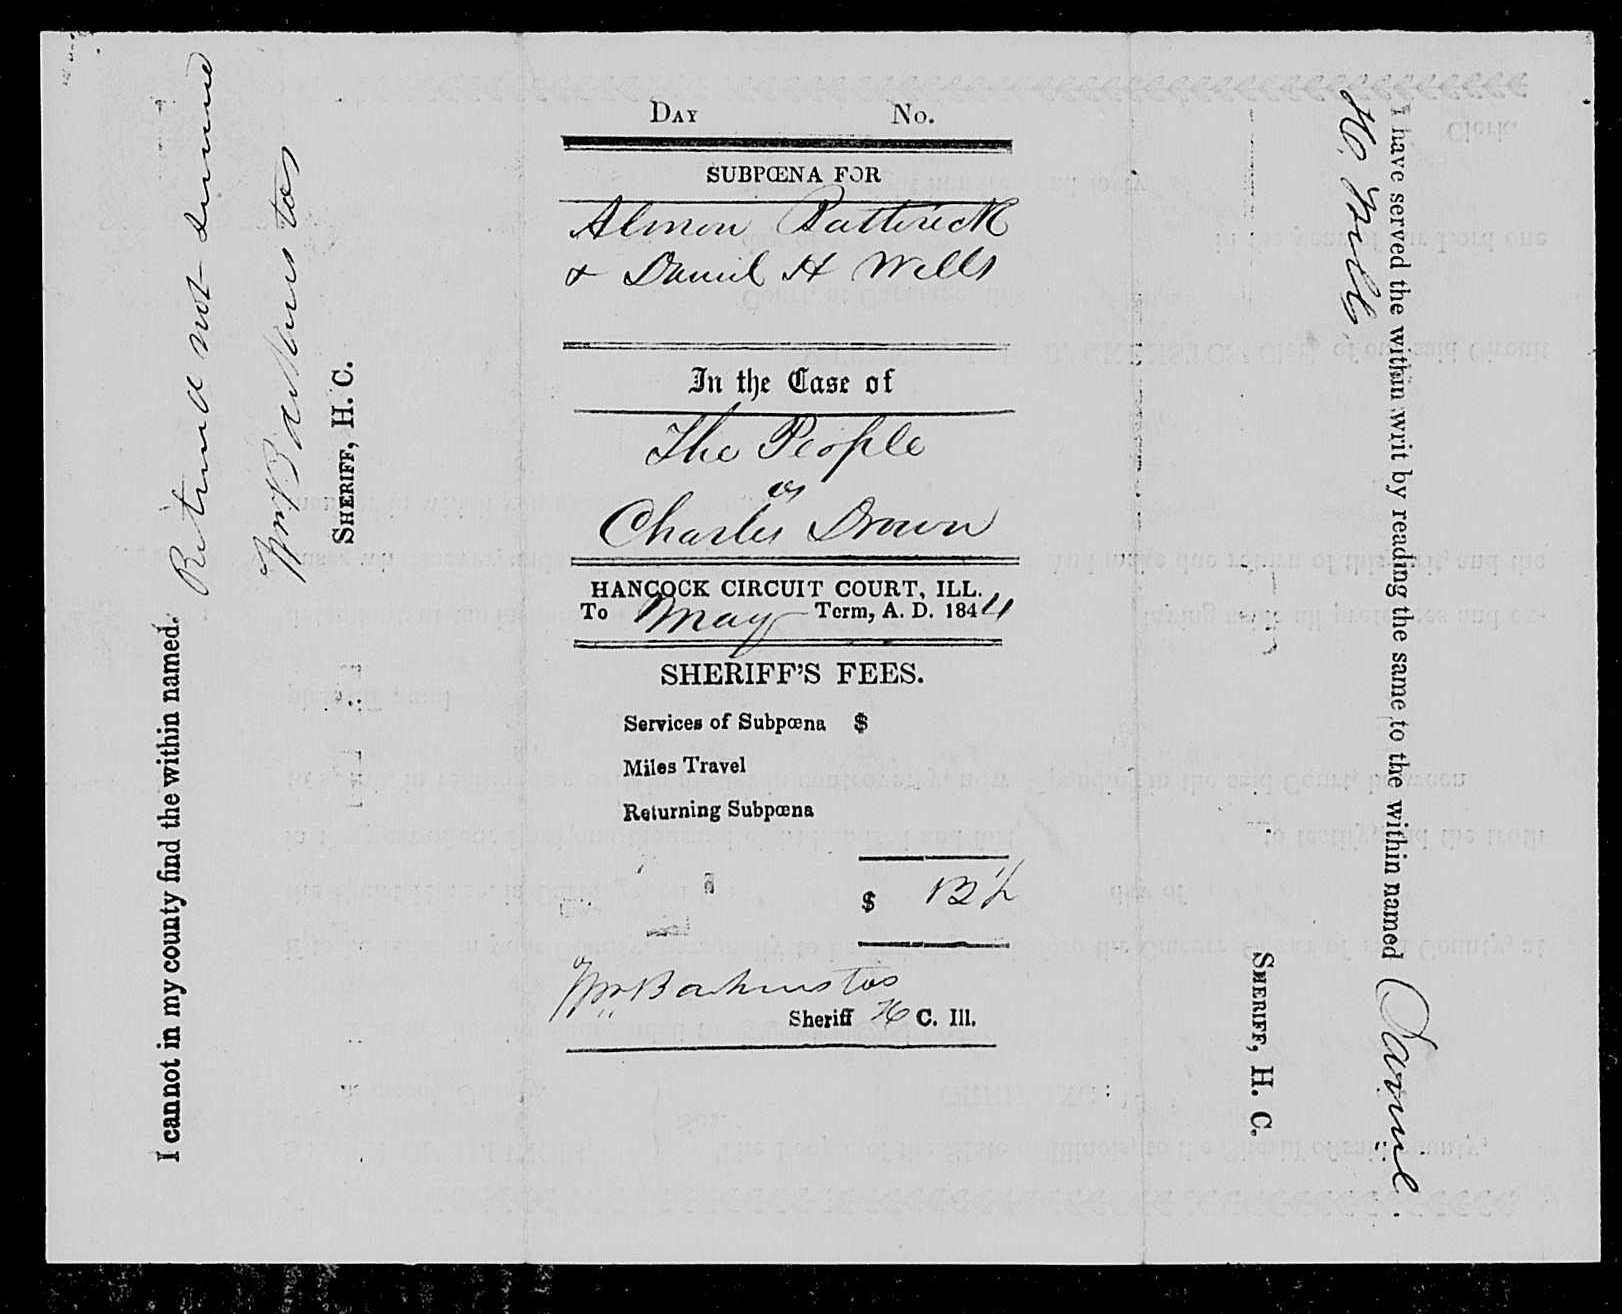 I cannot in my county find the within named.
Returned not
Wm Backenstos
SHERIFF, H. C.
DAY No.
SUBPŒNA FOR
Almon Battrick
& Daniel H Wells
In the Case of
The People
vs
Charles Drown
HANCOCK CIRCUIT COURT, ILL.
To May Term, A. D. 1844
SHERIFF'S FEES.
Services of Subpœna $
Miles Travel
Returning Subpœna
$
Wm Backenstos
Sheriff H C. Ill.
I have served the within writ by reading the same to the within named Daniel
H. Wells
SHERIFF, H. C.